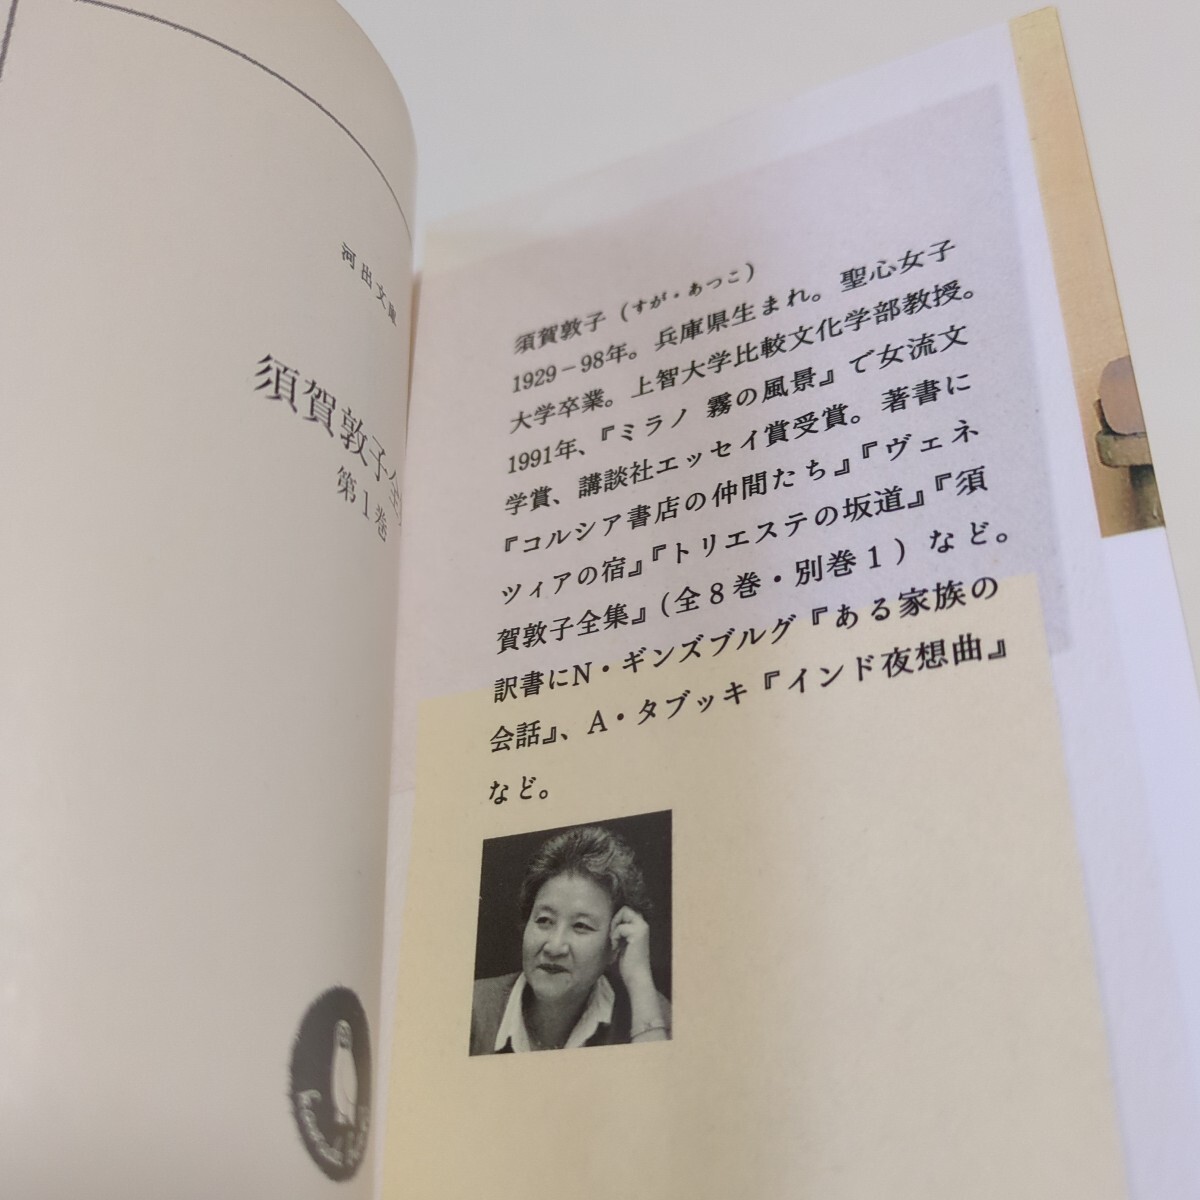 河出文庫
須賀敦子全
第1巻
須賀敦子（すが・あつこ）
1929－98年。兵庫県生まれ。聖心女子
大学卒業。上智大学比較文化学部教授。
1991年、『ミラノ 霧の風景』で女流文
学賞、講談社エッセイ賞受賞。著書に
『コルシア書店の仲間たち』『ヴェネ
ツィアの宿』『トリエステの坂道』『須
賀敦子全集』（全８巻・別巻１）など。
訳書にN・ギンズブルグ『ある家族の
会話』、A・タブッキ『インド夜想曲』
など。